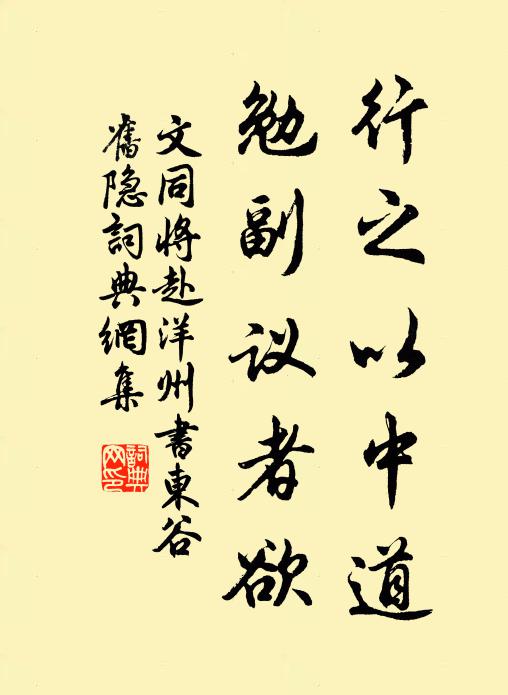 行之以中道
勉副议者欲
文同将赴洋州書東谷
舊隐詞典網集
詞典网印